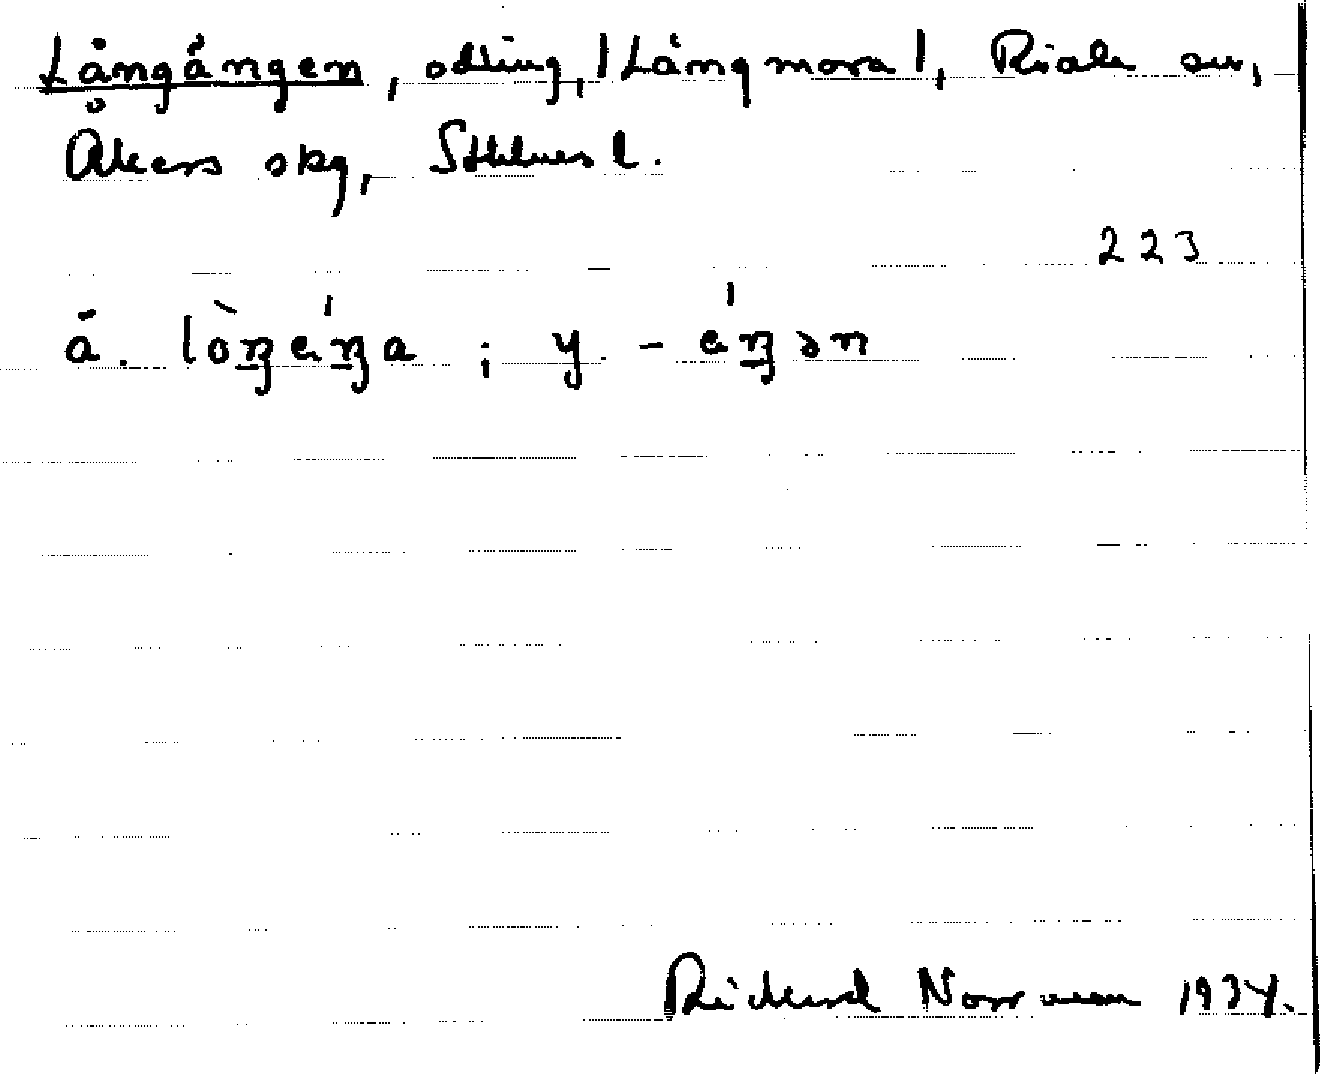 Långången, odling, |Långmora|, Riala sn,
Åkers skg, Sthlms l.
223
ä. lòŋéŋa ; y. - éŋən
Rickard Norrman 1934.